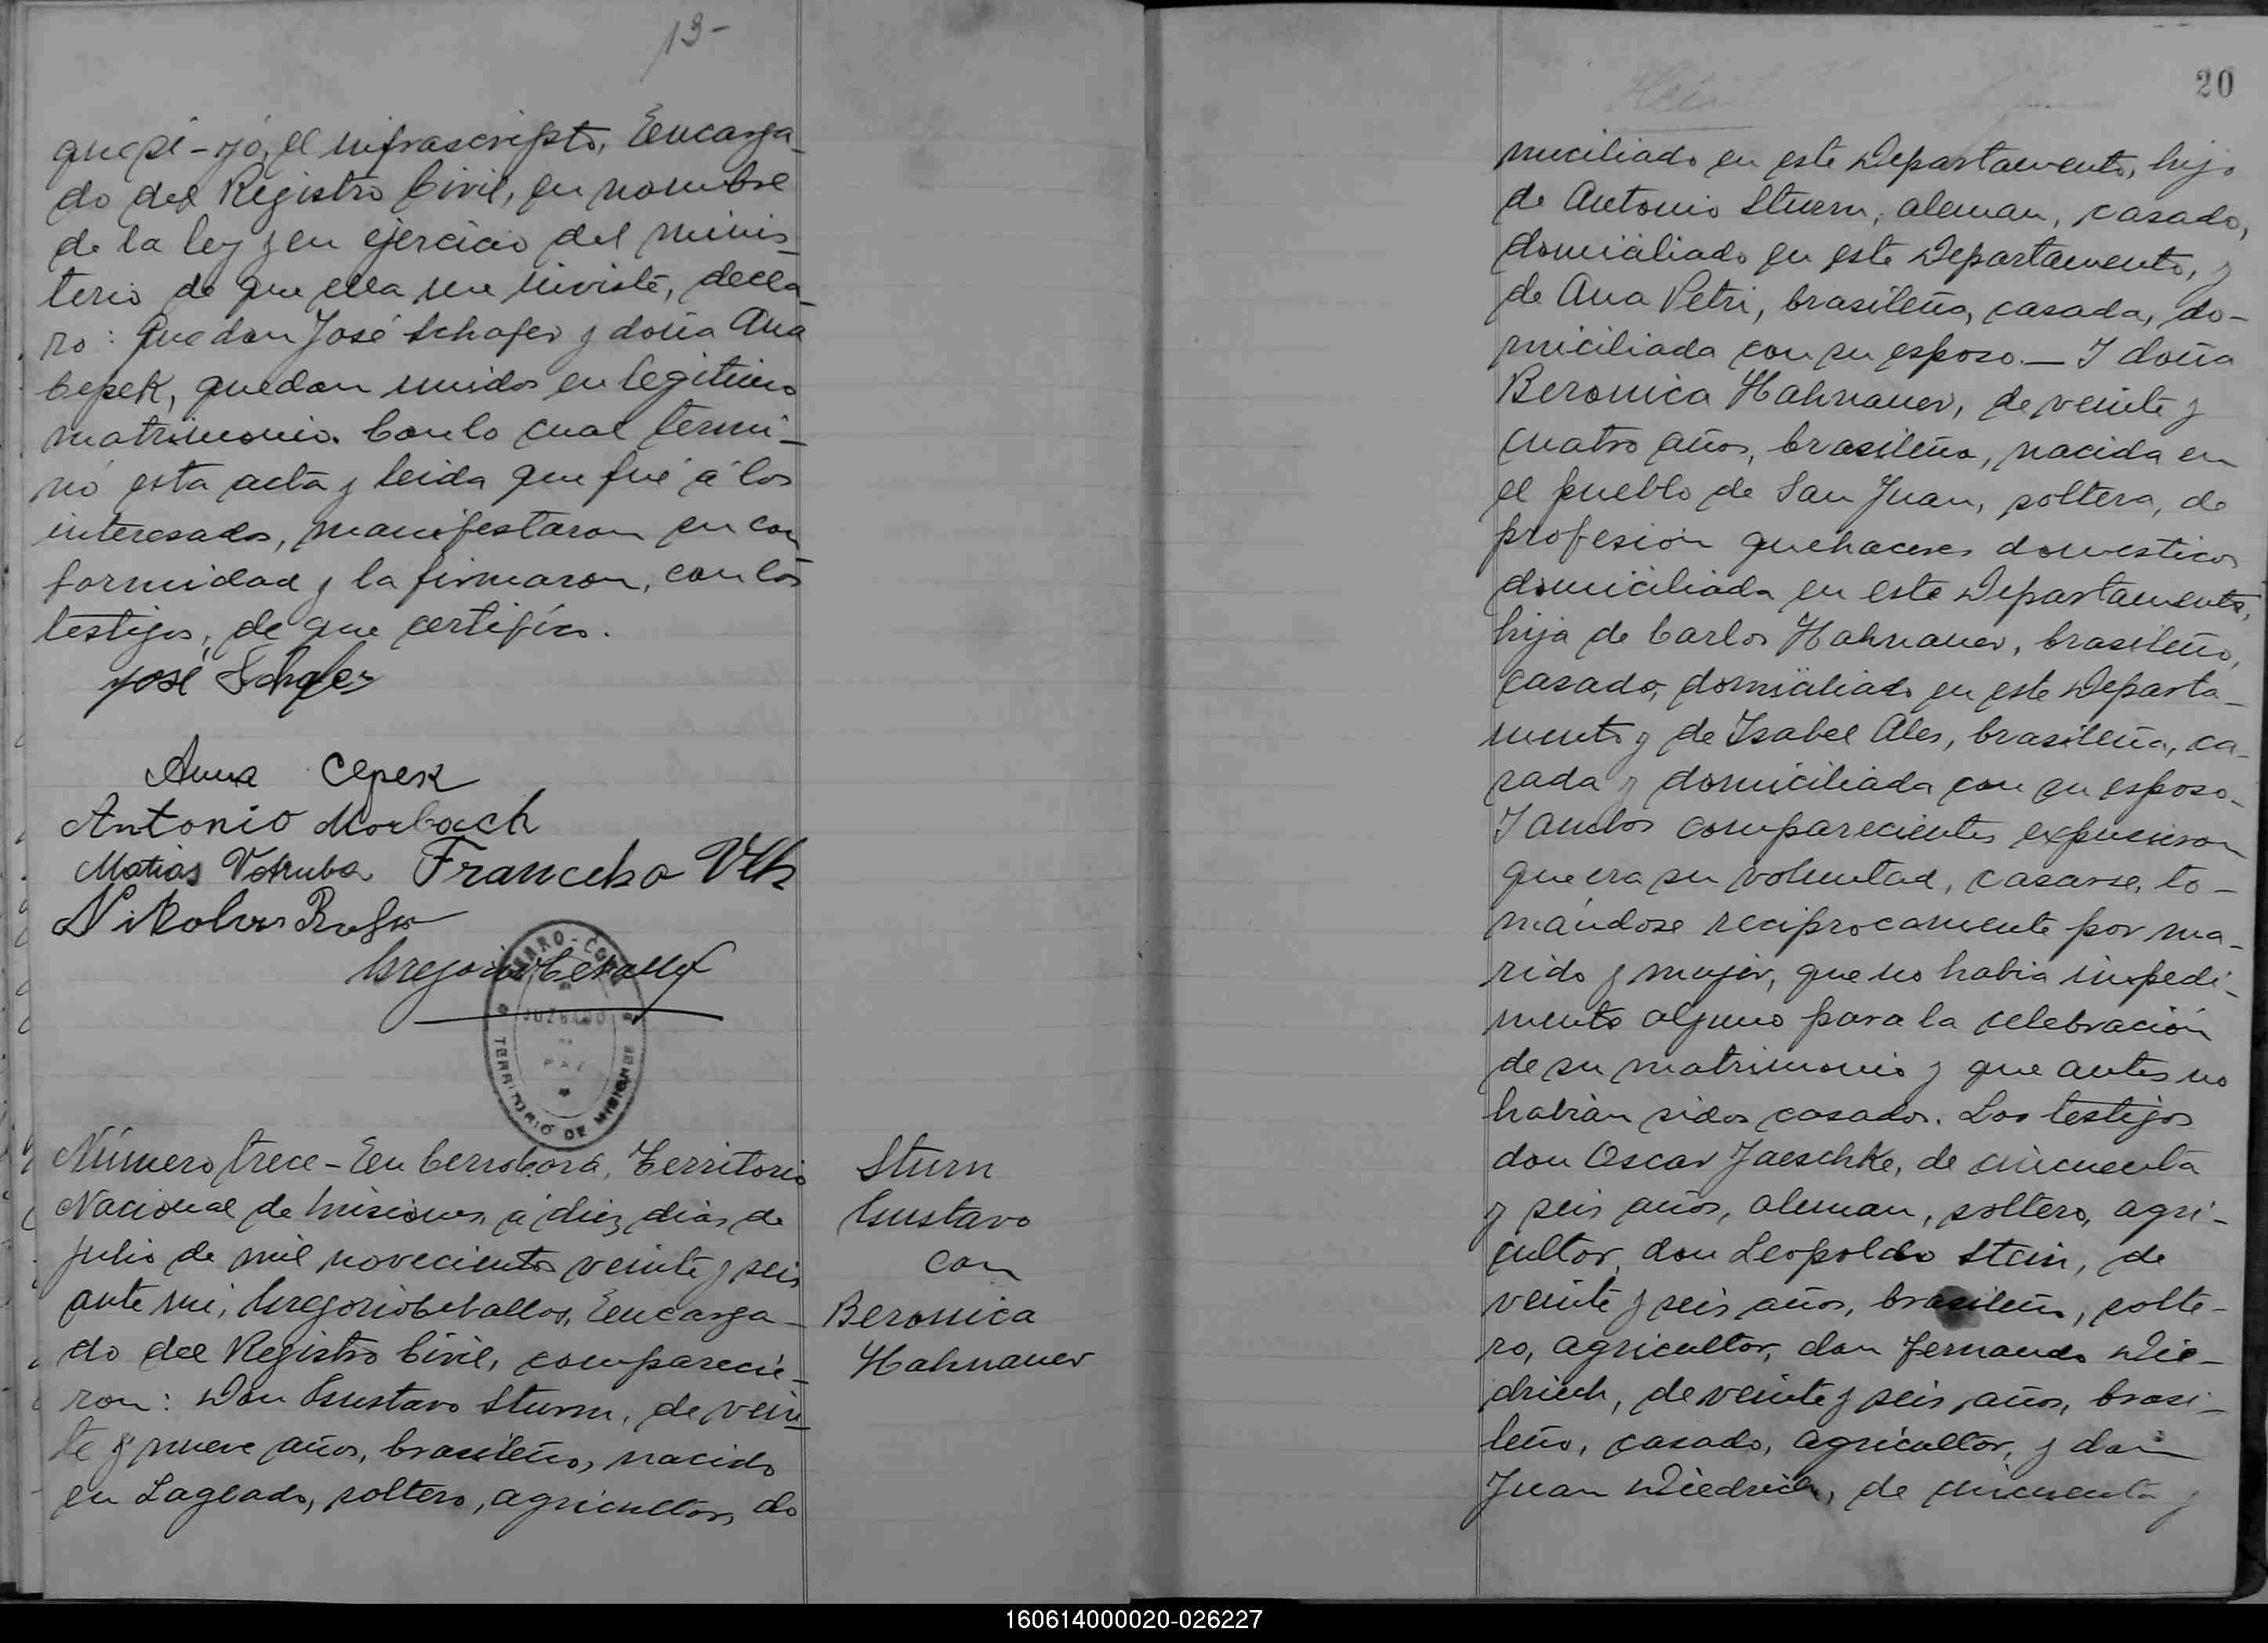 13-
que sí - yó, el infrascripto, Encarga-
do del Registro Civil, en nombre
de la ley y en ejercicio del minis-
terio de que ella me inviste, decla-
ro: Que don José Schafer y doña Ana
Cepek, quedan unidos en legitimo
matrimonio. Con lo cual termi-
nó esta acta y leida que fué á los
interesados, manifestaron su con
formidad y la firmaron, con los
testigos, de que certifico.
José Schafer
Anna Cepek
Antonio Morbach
Matias Votruba Francisko Vlk
Nikolaus
Gregorio Cevallos
CERRO-CORÁ
JUZGADO
DE
PAZ
TERRITORIO DE MISIONES
Número trece - En Cerro Corá, Territorio
Nacional de Misiones, á diez dias de
Julio de mil novecientos veinte y seis,
ante mi, Gregorio Cevallos, Encarga-
do del Registro Civil, comparecie-
ron: Don Gustavo Sturm, de vein-
te y nueve años, brasileño, nacido
en Lageado, soltero, agricultor, do
Sturn
Gustavo
con
Beronica
Hahnauer
20
miciliado en este Departamento, hijo
de Antonio Sturm, aleman, casado,
domiciliado en este Departamento, y
de Ana Petri, brasileña, casada, do-
miciliada con su esposo. — I doña
Beronica Hahnauer, de veinte y
cuatro años, brasileña, nacida en
el pueblo de San Juan, soltera, de
profesión quehaceres domesticos
domiciliada en este Departamento,
hija de Carlos Hahnauer, brasileño,
casado, domiciliado en este Departa-
mento y de Isabel Ales, brasileña, ca-
sada y domiciliada con su esposo.
I ambos comparecientes expusieron
que era su voluntad, casarse, to-
mándose reciprocamente por ma-
rido y mujer, que no habia impedi-
mento alguno para la celebración
de su matrimonio y que antes no
habian sidos casados. Los testigos
don Oscar Jaeschke, de cincuenta
y seis años, aleman, soltero, agri-
cultor, don Leopoldo Stein, de
veinte y seis años, brasileño, solte-
ro, agricultor, don Fernando Die-
driech, de veinte y seis años, brasi-
leño, casado, agricultor, y don
Juan Diedrich, de cincuenta y
160614000020-026227